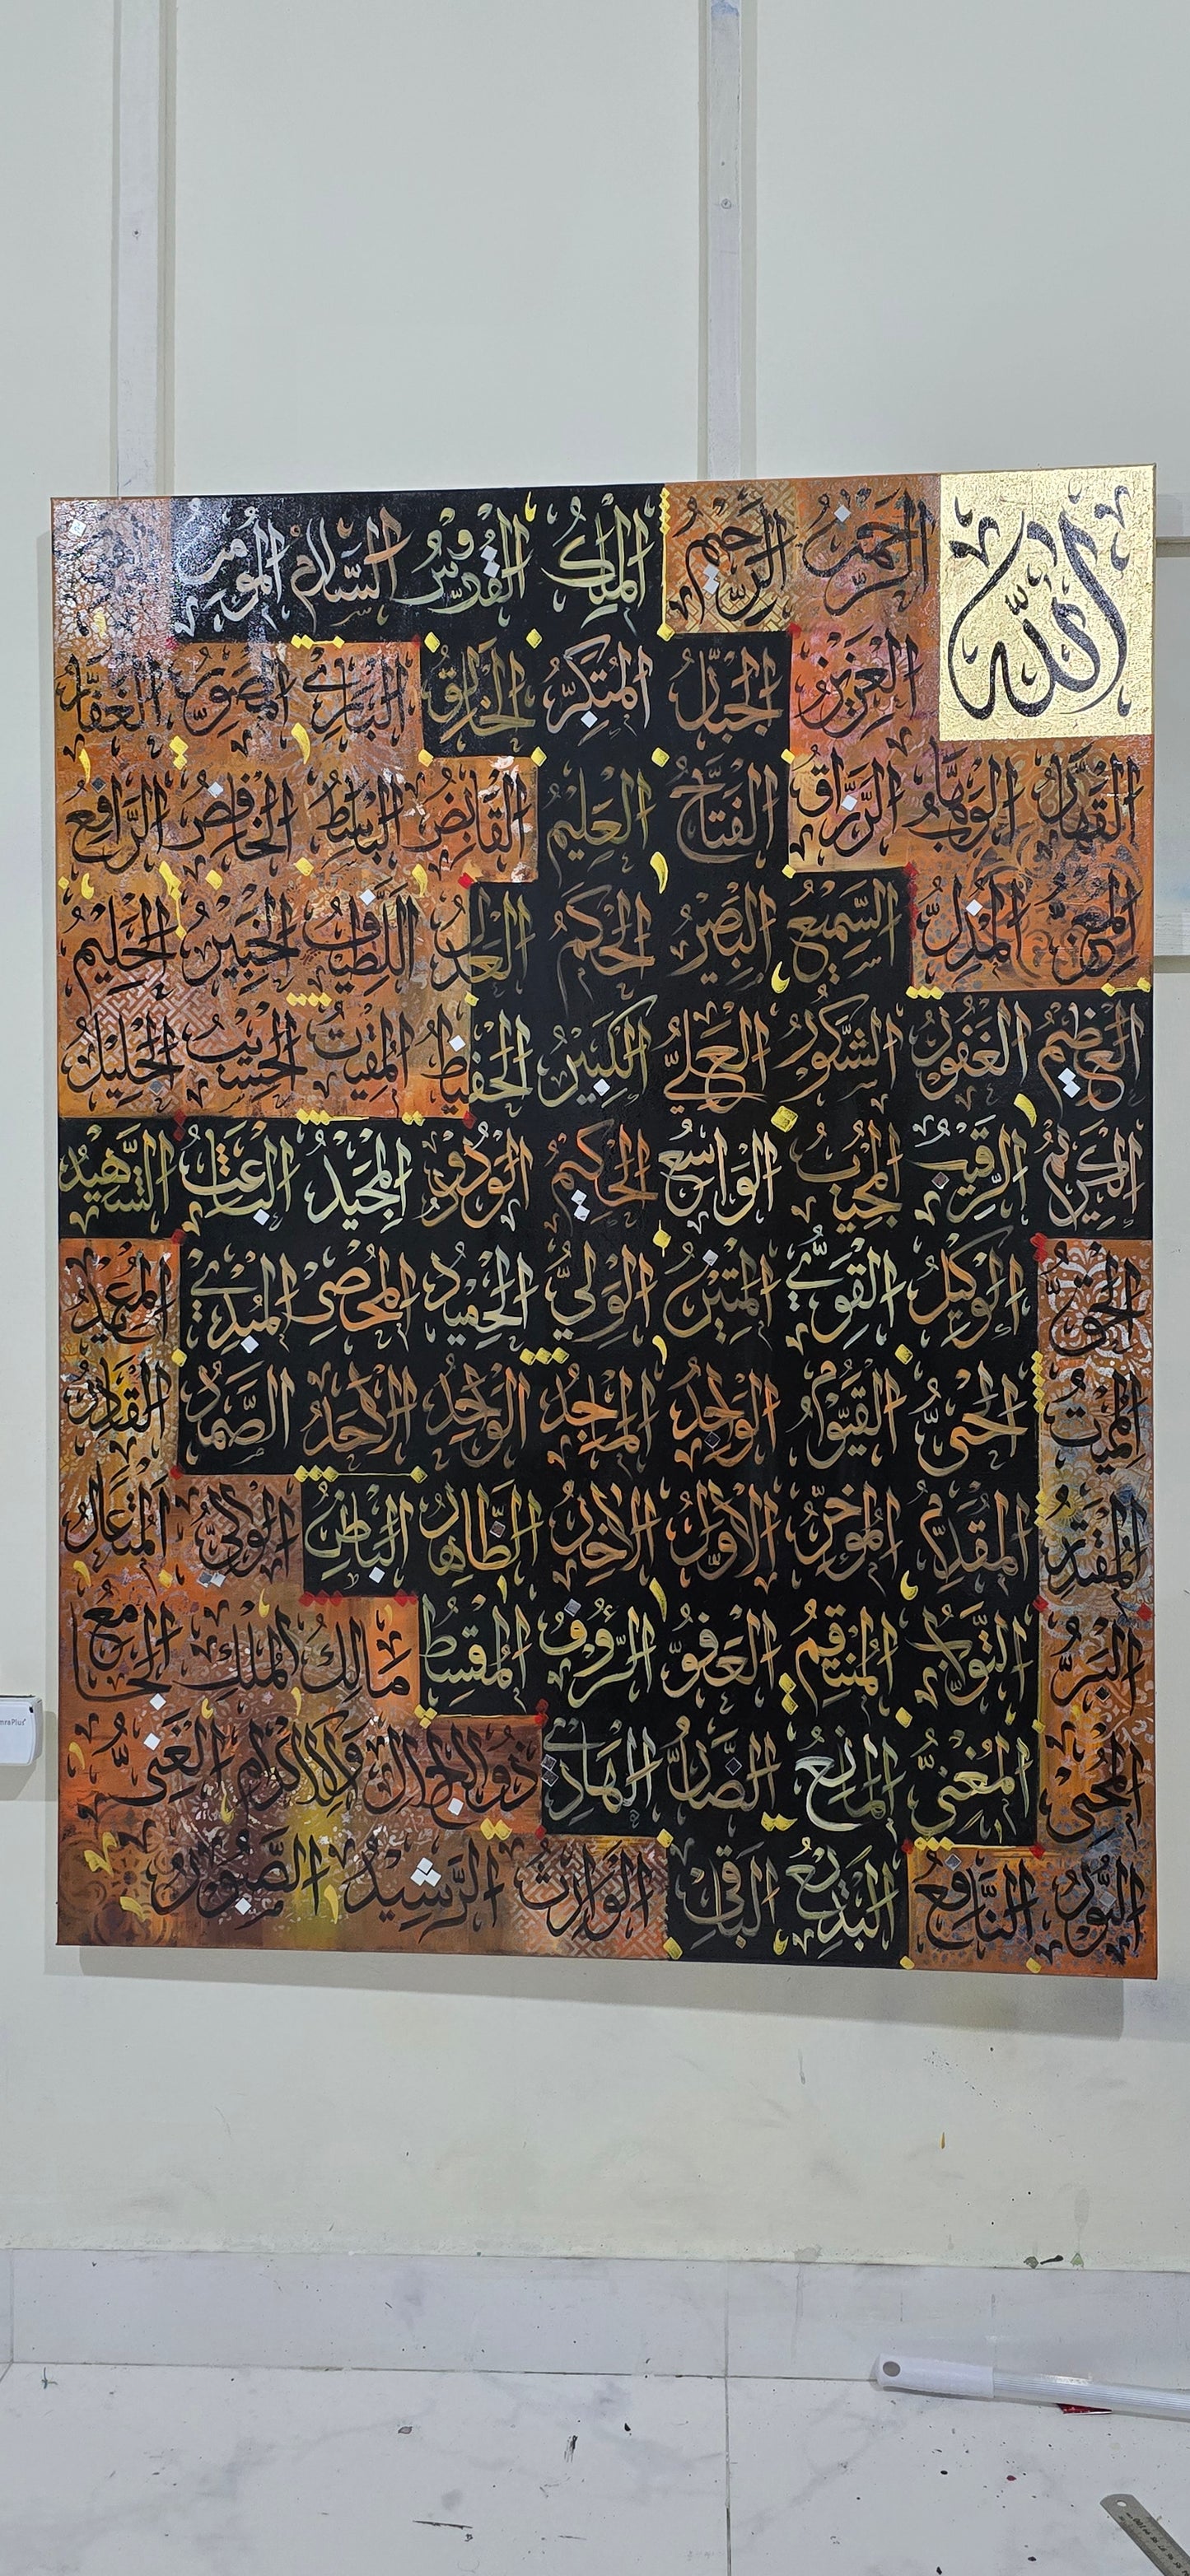 الله
الرحمن الرحيم الملك القدوس السلام المؤمن
العزيز الجبار المتكبر الخالق البارئ المصور الغفار
القهار الوهاب الرزاق الفتاح العليم القابض الباسط الخافض الرافع
المعز المذل السميع البصير الحكم العدل اللطيف الخبير الحليم
العظيم الغفور الشكور العلي الكبير الحفيظ المقيت الحسيب الجليل
الكريم الرقيب المجيب الواسع الحكيم الودود المجيد الباعث الشهيد
الحق الوكيل القوي المتين الولي الحميد المحصي المبدئ المعيد
المميت الحي القيوم الواجد الماجد الواحد الاحد الصمد القادر
المقتدر المقدم المؤخر الأول الآخر الظاهر الباطن الوالي المتعال
البر التواب المنتقم العفو الرؤوف المقسط مالك الملك الجامع
المحيي المغني المانع الضار الهادي ذو الجلال والإكرام الغني
النور النافع البديع الباقي الوارث الرشيد الصبور